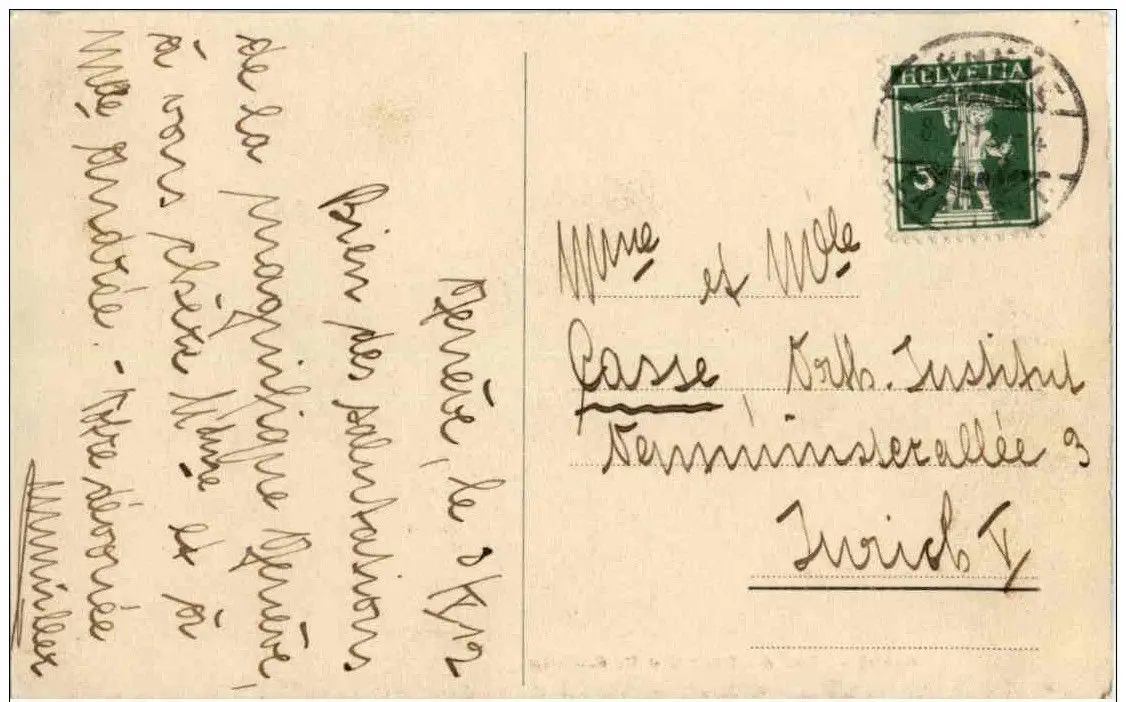 Genève, le 8 IV 12
Bien des salutations
de la magnifique Genève,
à vous chère Mme et à
Mlle Andrée. - Votre dévouée
HELVETIA
5
Mme et Mlle
Casse, Orth. Institut
Neumünsterallée 3
Zurich V